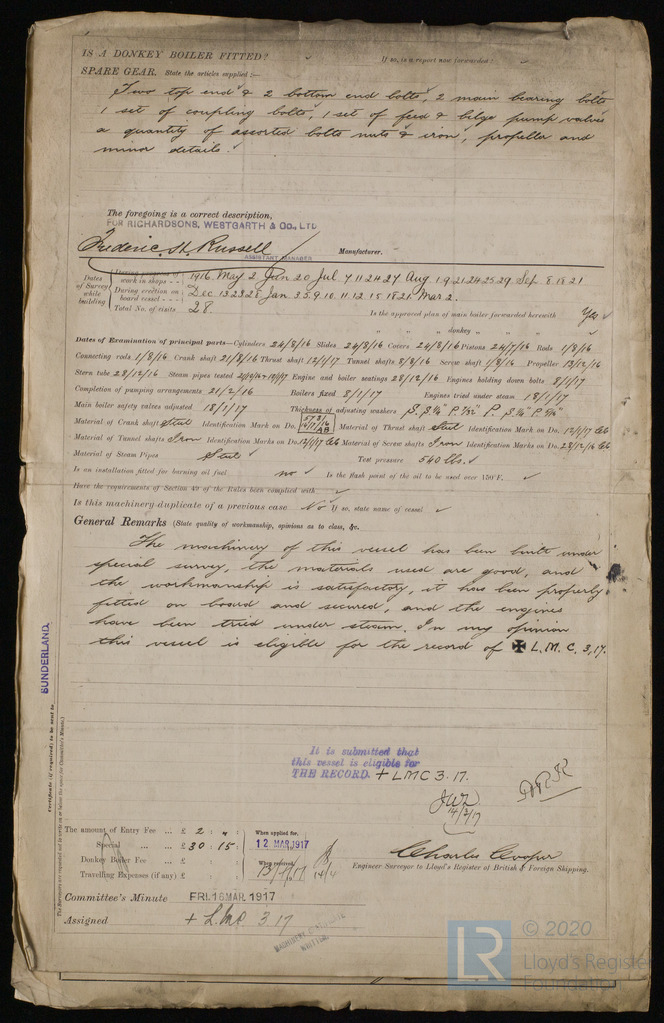 IS A DONKEY BOILER FITTED? If so, is a report now forwarded?
SPARE GEAR. State the articles supplied:—
Two top end & 2 bottom end bolts, 2 main bearing bolts
1 set of coupling bolts, 1 set of feed & bilge pump valves
a quantity of assorted bolts nuts & iron, propeller and
minor details.
The foregoing is a correct description,
FOR RICHARDSONS, WESTGARTH & Co., LTD
Frederic. H. Russell Manufacturer.
ASSISTANT MANAGER
Dates of Survey while building
During progress of work in shops - - 1916 May 2 Jun 20 Jul 7 11 24 27 Aug 1 9 21 24 25 29 Sep 8 18 21
During erection on board vessel - - - Dec 13 23 28 Jan 3 5 9 10 11 12 15 18 21 Mar 2.
Total No. of visits 28. Is the approved plan of main boiler forwarded herewith Yes
" " " donkey " " "
Dates of Examination of principal parts—Cylinders 24/8/16 Slides 24/8/16 Covers 24/8/16 Pistons 24/7/16 Rods 1/8/16
Connecting rods 1/8/16 Crank shaft 21/8/16 Thrust shaft 12/1/17 Tunnel shafts 8/8/16 Screw shaft 1/8/16 Propeller 13/12/16
Stern tube 28/12/16 Steam pipes tested Engine and boiler seatings 28/12/16 Engines holding down bolts 8/1/17
Completion of pumping arrangements 21/2/16 Boilers fixed 8/1/17 Engines tried under steam 18/1/17
Main boiler safety valves adjusted 18/1/17 Thickness of adjusting washers
Material of Crank shaft Steel Identification Mark on Do. Material of Thrust shaft Steel Identification Mark on Do. 12/1/17
Material of Tunnel shafts Iron Identification Marks on Do. 12/1/17 Material of Screw shafts Iron Identification Marks on Do. 28/12/16
Material of Steam Pipes Steel Test pressure 540 lbs.
Is an installation fitted for burning oil fuel no Is the flash point of the oil to be used over 150°F.
Have the requirements of Section 49 of the Rules been complied with
Is this machinery duplicate of a previous case No If so, state name of vessel
General Remarks (State quality of workmanship, opinions as to class, &c.
The machinery of this vessel has been built under
special survey, the materials used are good, and
the workmanship is satisfactory, it has been properly
fitted on board and secured, and the engines
have been tried under steam. In my opinion
this vessel is eligible for the record of ✠ L.M.C. 3,17.
SUNDERLAND.
Certificate (if required) to be sent to
(The Surveyors are requested not to write on or below the space for Committee's Minute.)
It is submitted that
this vessel is eligible for
THE RECORD. + LMC 3.17.
14/3/17
The amount of Entry Fee ... £ 2 : " : When applied for,
Special ... £ 30 : 15 : 12 MAR 1917
Donkey Boiler Fee ... £ When received,
Travelling Expenses (if any) £
Charles Cooper
Engineer Surveyor to Lloyd's Register of British & Foreign Shipping.
Committee's Minute FRI. 16 MAR. 1917
Assigned + LMC 3.17
MACHINERY CERTIFICATE
WRITTEN
© 2020
LR
Lloyd's Register
Foundation